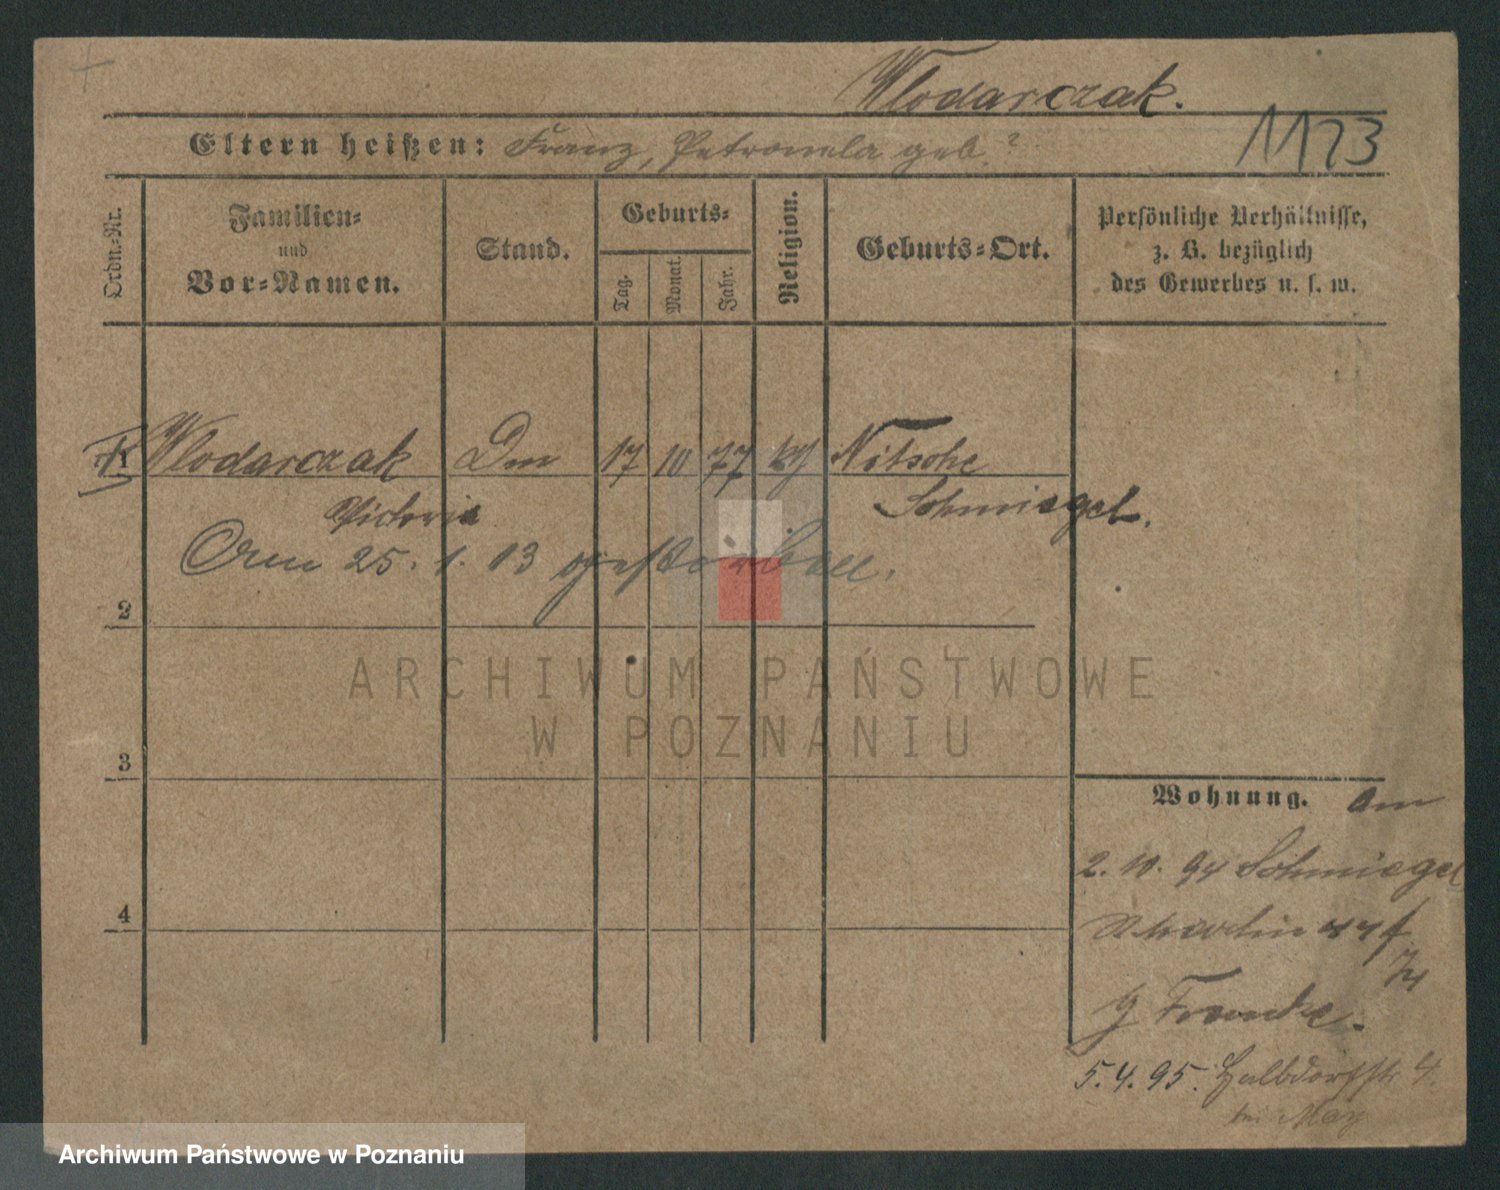 Wlodarczak.
Eltern heißen: Franz, Petronela geb. ?
1123
Ordn.-Nr.
Familien- und Vor-Namen.
Stand.
Geburts-
Tag. Monat. Jahr.
Religion.
Geburts-Ort.
Persönliche Verhältnisse,
z. B. bezüglich
des Gewerbes u. s. w.
Wlodarczak 17 10 77 Nitsche
Victoria Schmiegel.
25. 1. 13 gestorben.
2
3
4
Wohnung. Am
2. 10. 94 Schmiegel
Martin
5. 4. 95. Halbdorfstr. 4.
bei May
ARCHIWUM PAŃSTWOWE
W POZNANIU
Archiwum Państwowe w Poznaniu